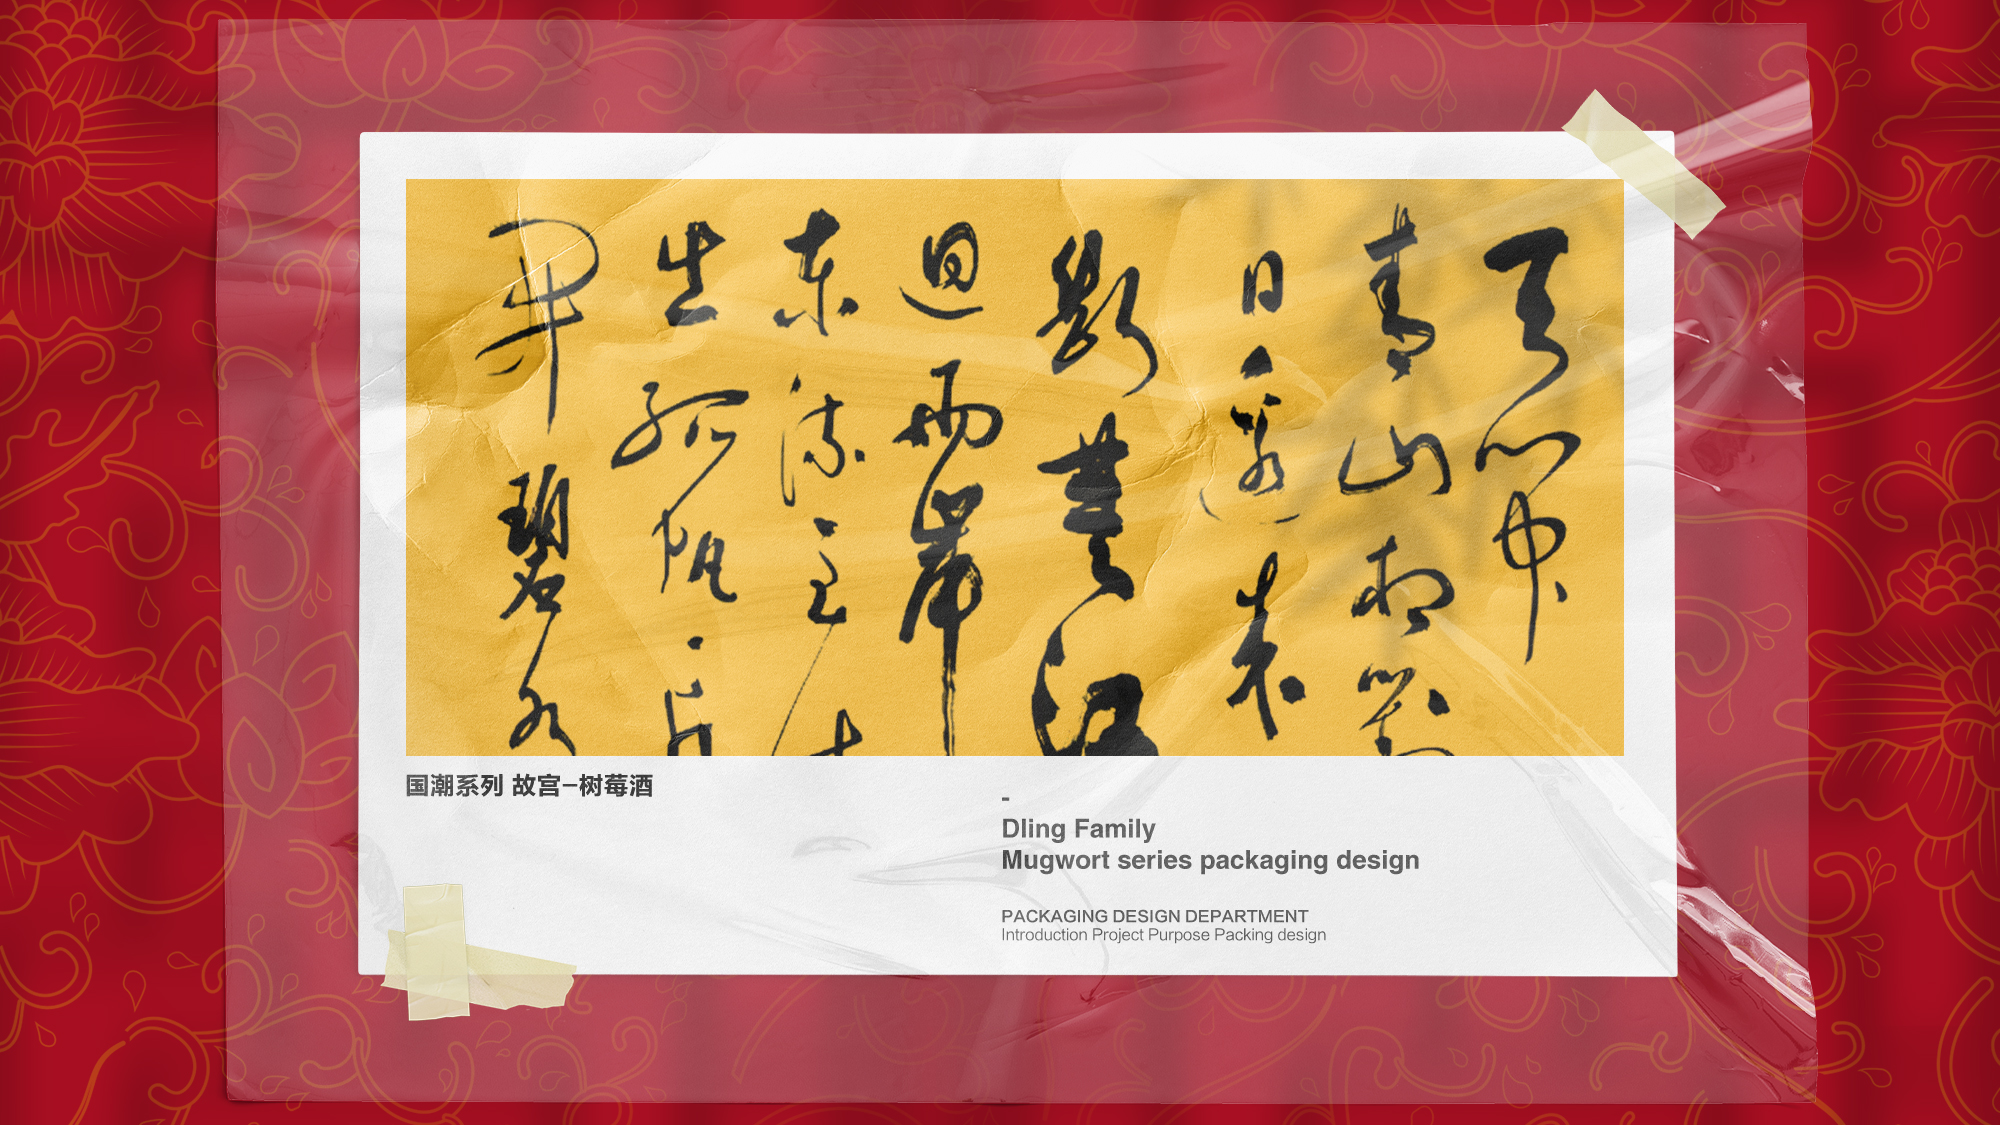 天门中
青山相對
日邊來
斷楚江
迴兩岸
东流至
出孤帆一片
開碧水
国潮系列 故宫-树莓酒
-
Dling Family
Mugwort series packaging design
PACKAGING DESIGN DEPARTMENT
Introduction Project Purpose Packing design